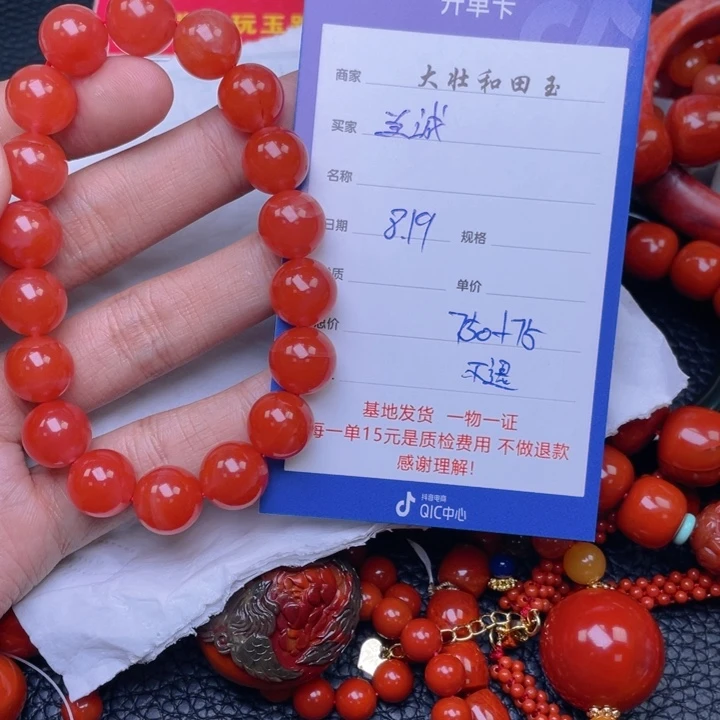 玩玉
开单卡
商家 大壮和田玉
买家 诚
名称
日期 8.19 规格
质 单价
总价 750+75
不退
基地发货 一物一证
每一单15元是质检费用 不做退款
感谢理解!
抖音电商
QIC中心